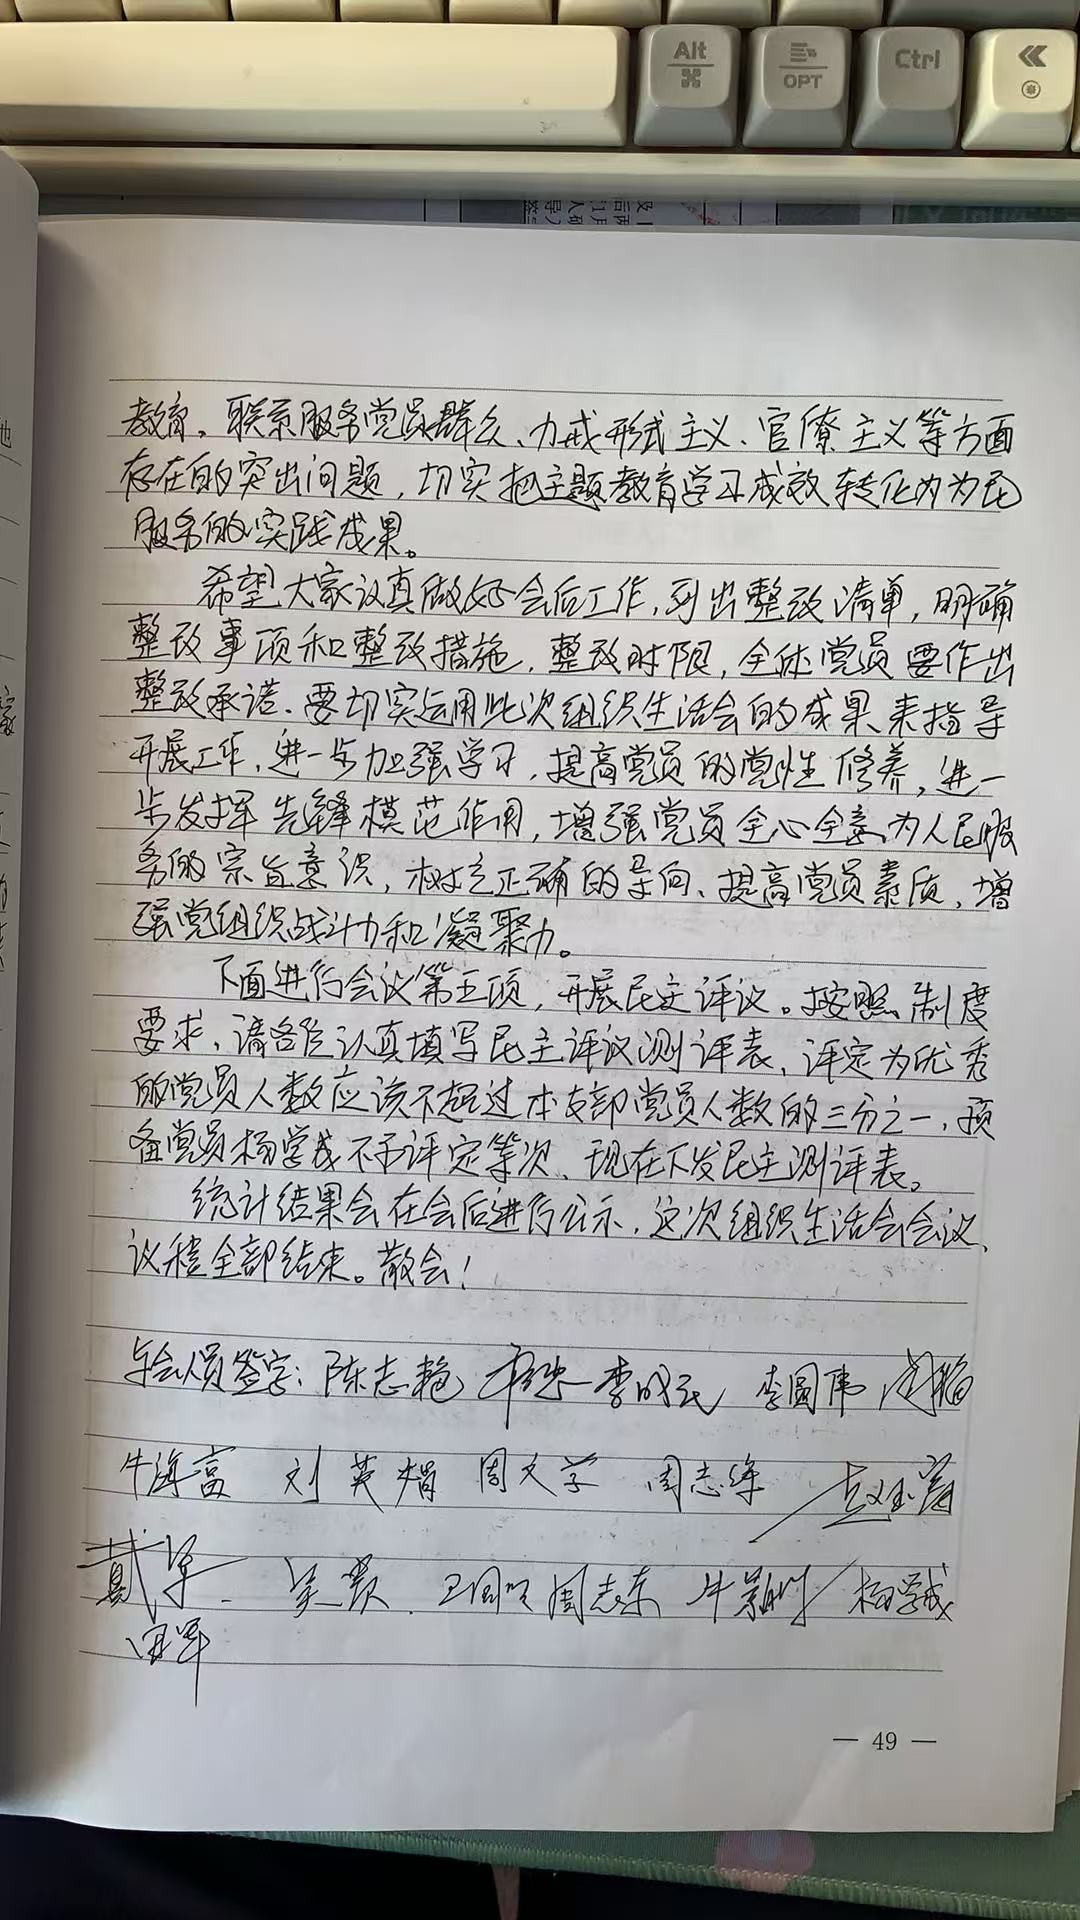 Alt
OPT
Ctrl
教育、联系服务党员群众、力戒形式主义、官僚主义等方面
存在的突出问题，切实把主题教育学习成效转化为为民
服务的实践成果。
希望大家认真做好会后工作，列出整改清单，明确
整改事项和整改措施，整改时限，全体党员要作出
整改承诺、要切实运用此次组织生活会的成果来指导
开展工作，进一步加强学习，提高党员的党性修养，进一
步发挥先锋模范作用，增强党员全心全意为人民服
务的宗旨意识，树立正确的导向、提高党员素质，增
强党组织战斗力和凝聚力。
下面进行会议第五项，开展民主评议。按照制度
要求，请各位认真填写民主评议测评表，评定为优秀
的党员人数应该不超过本支部党员人数的三分之一，预
备党员杨学成不予评定等次、现在下发民主测评表。
统计结果会在会后进行公示，这次组织生活会会议
议程全部结束。散会！
与会人员签字：陈志艳 李国伟
牛海富 刘英娟 周文学 周志华
戴军 吴贤 周志东 杨学成
— 49 —